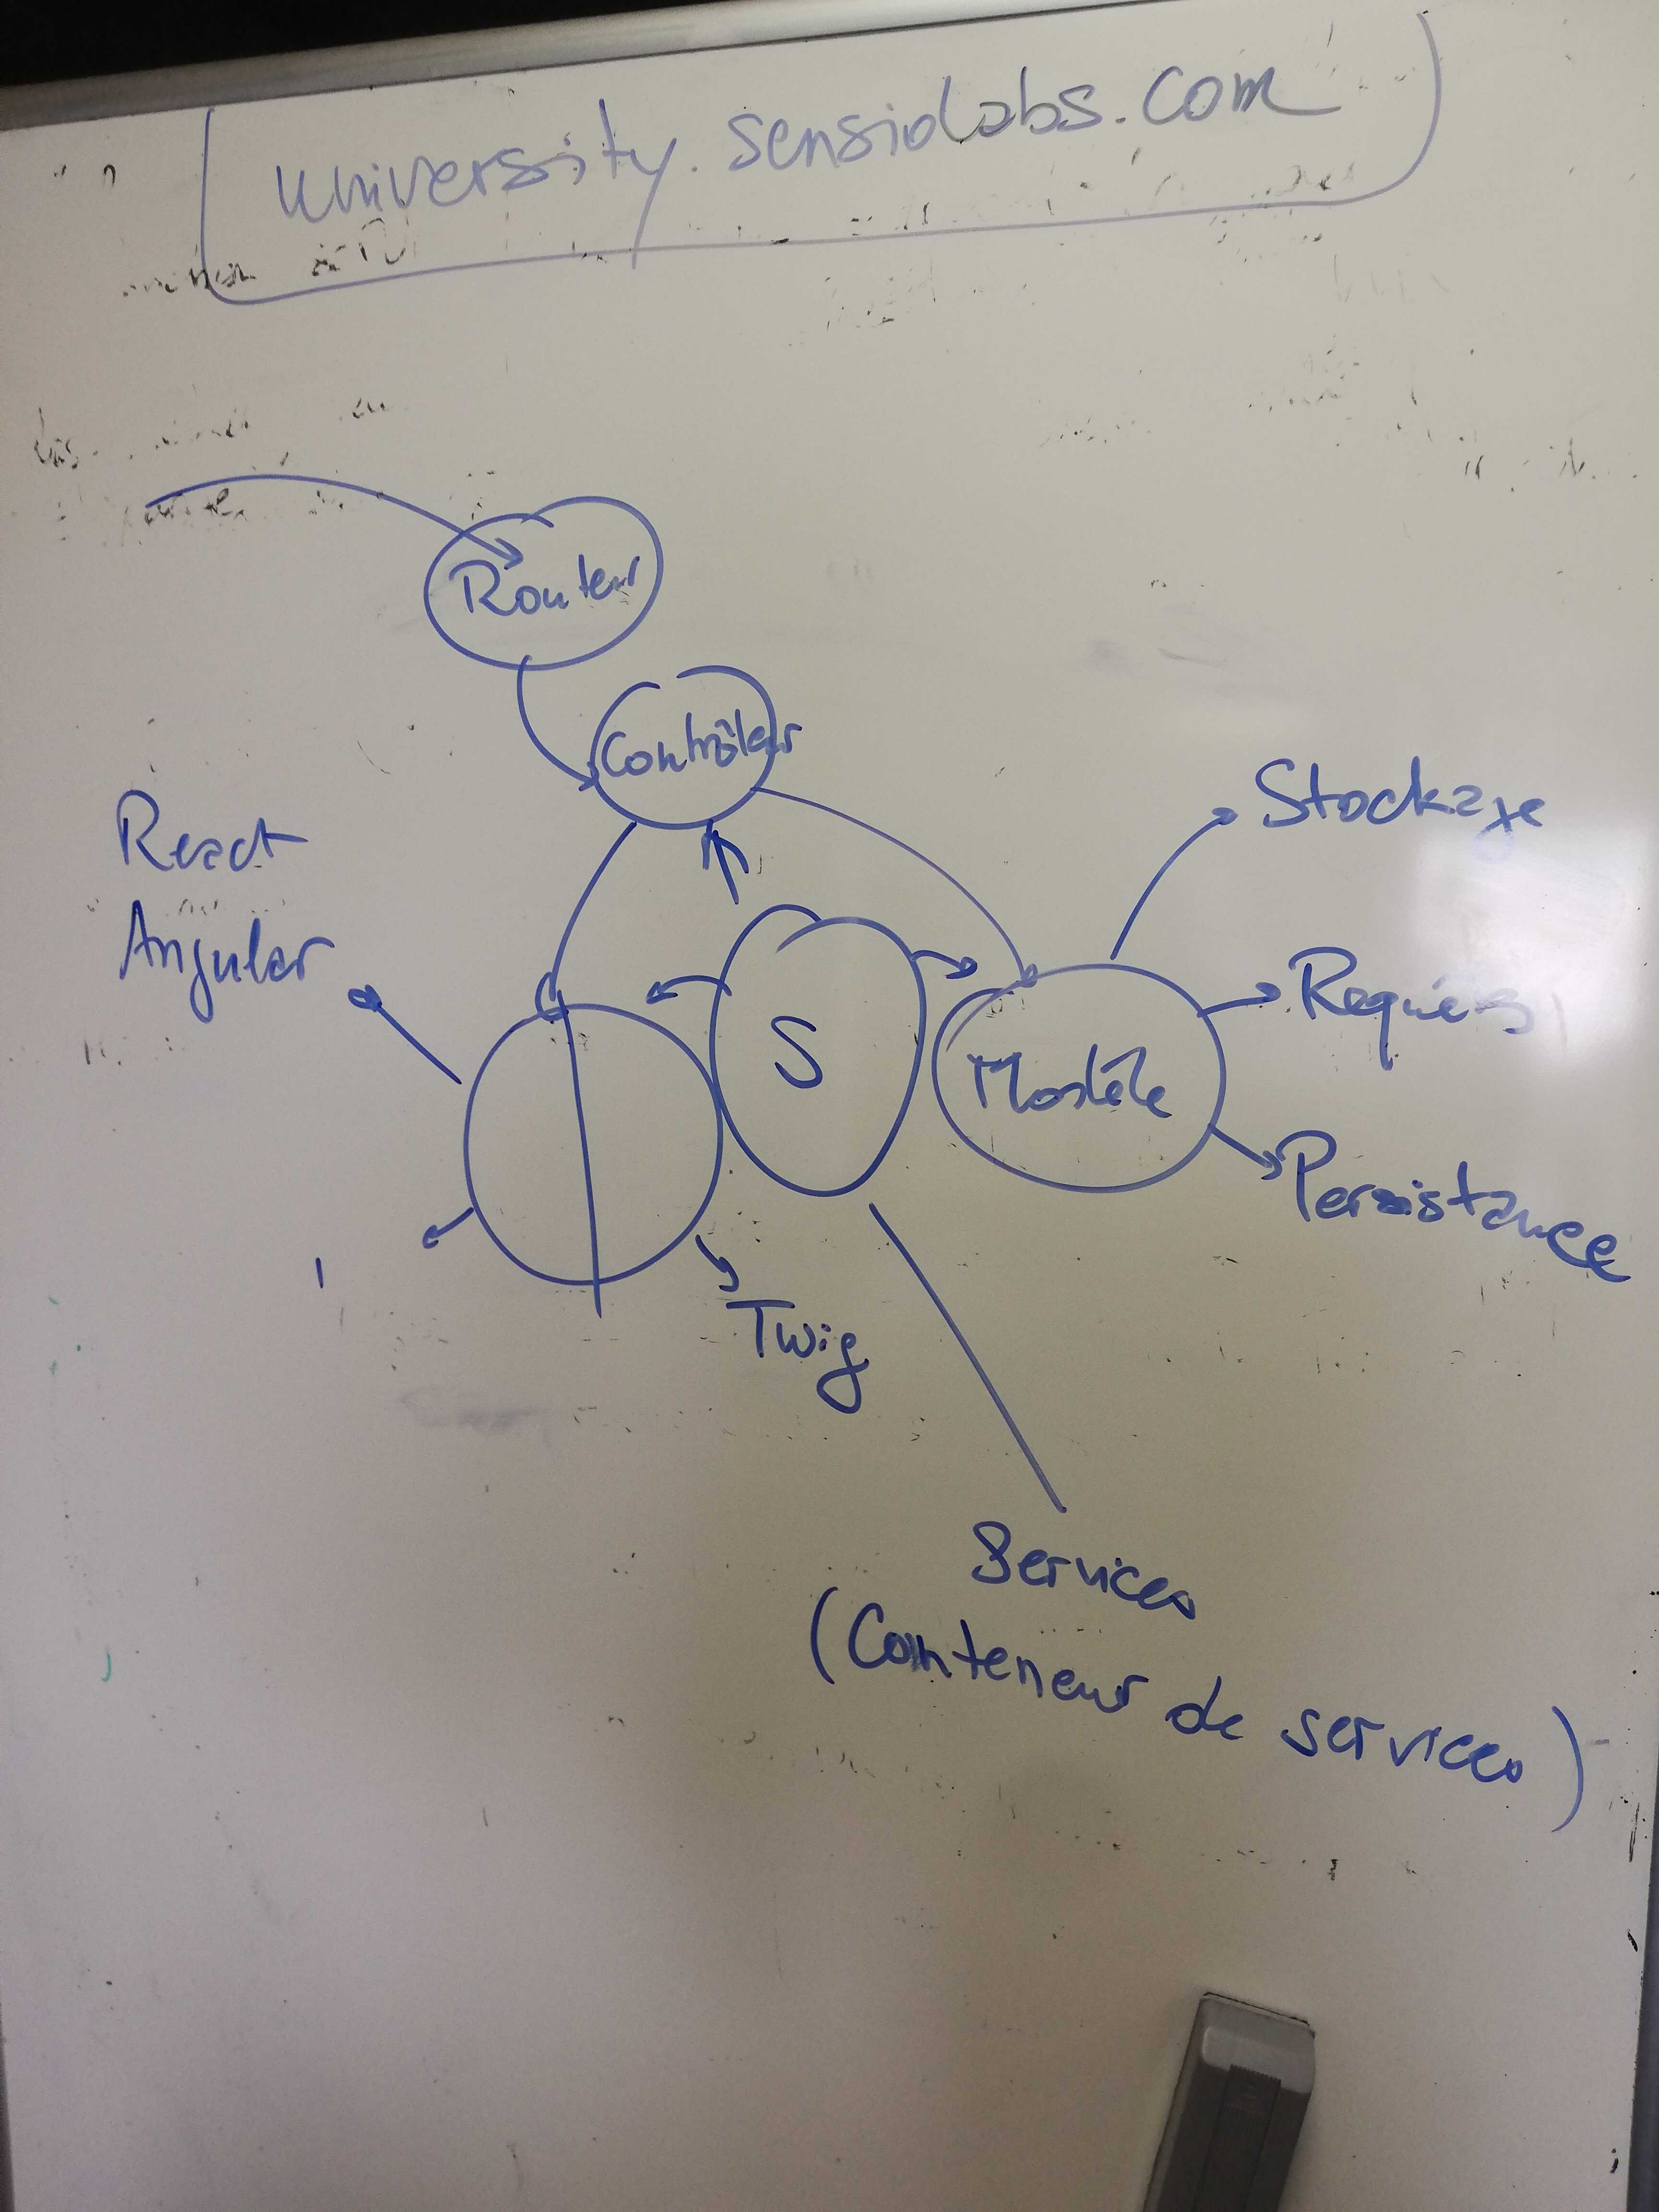 university.sensiolabs.com
Routeur
Contrôleur
React
Angular
Stockage
S
Modèle
Requêtes
Persistance
Twig
Services
(Conteneur de services)